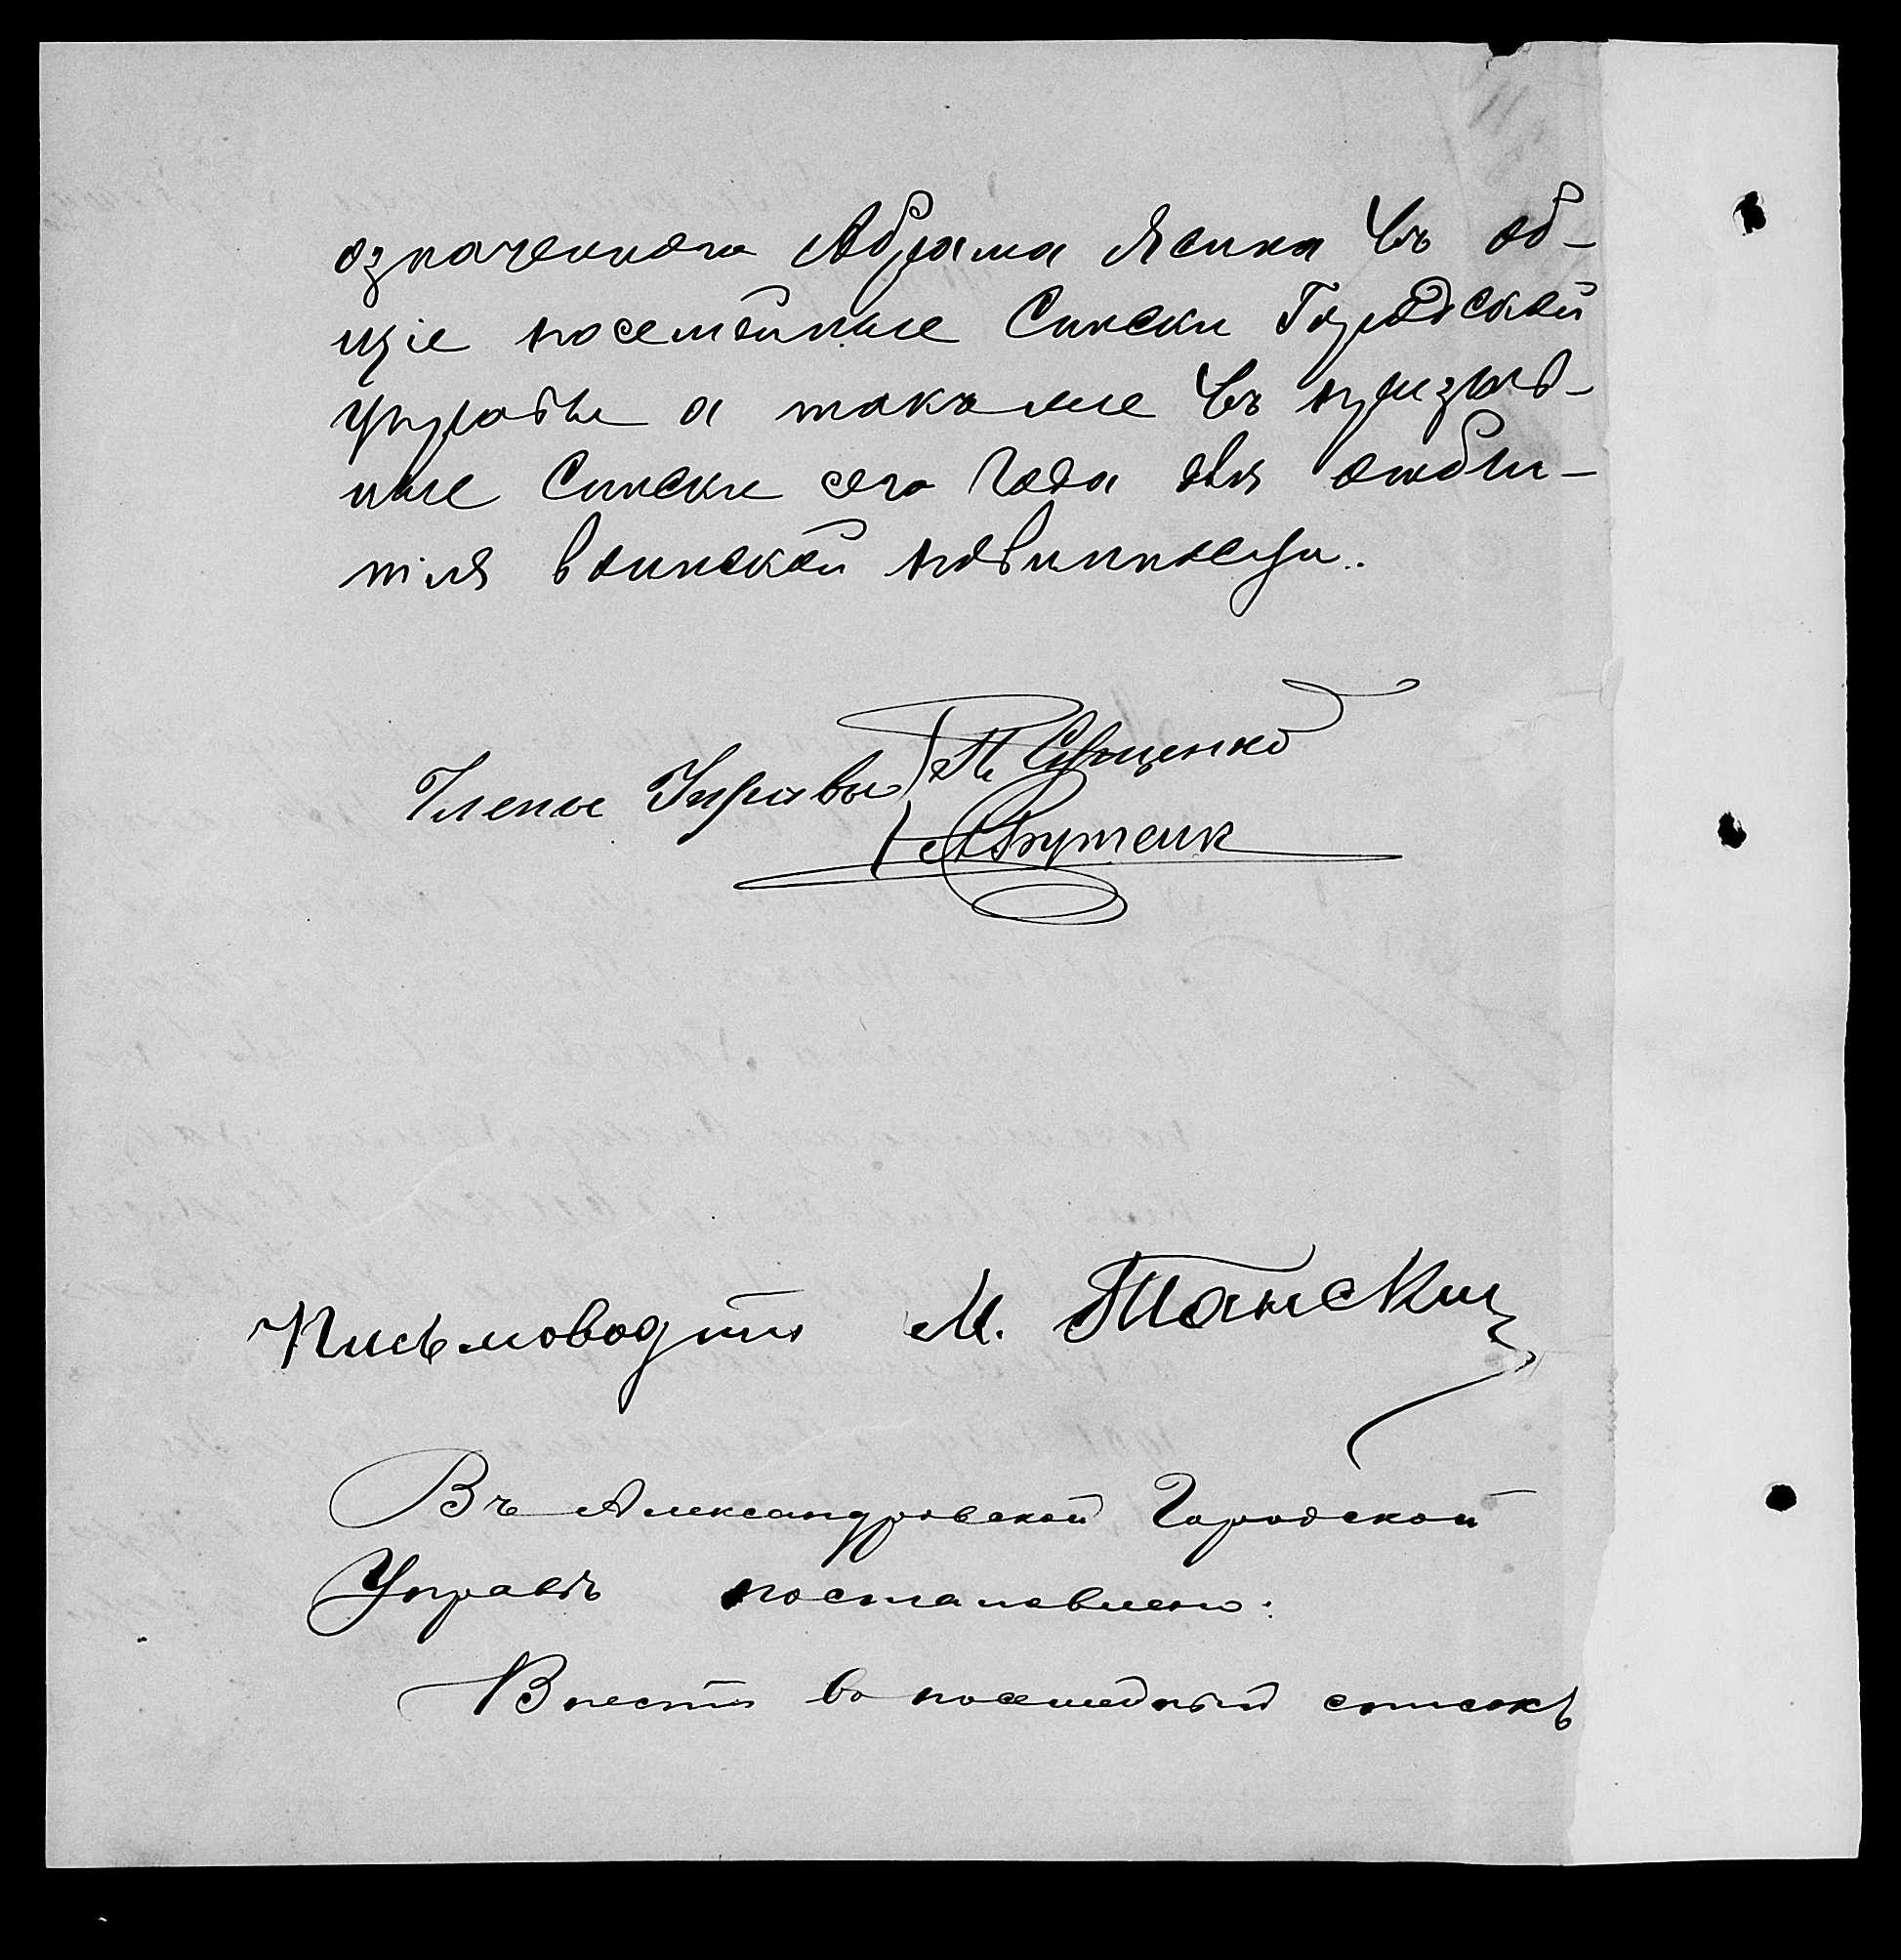 означеннаго Абрама Ясика въ об-
щіе посемейные Списки Городской
управы а также въ призыв-
ные Списки сего Года для отбы-
тія воинской повинности.
Члены Управы
Письмоводит М. Танский
Въ Александровской Городской
Управѣ постановлено:
Внести въ посемейный списокъ